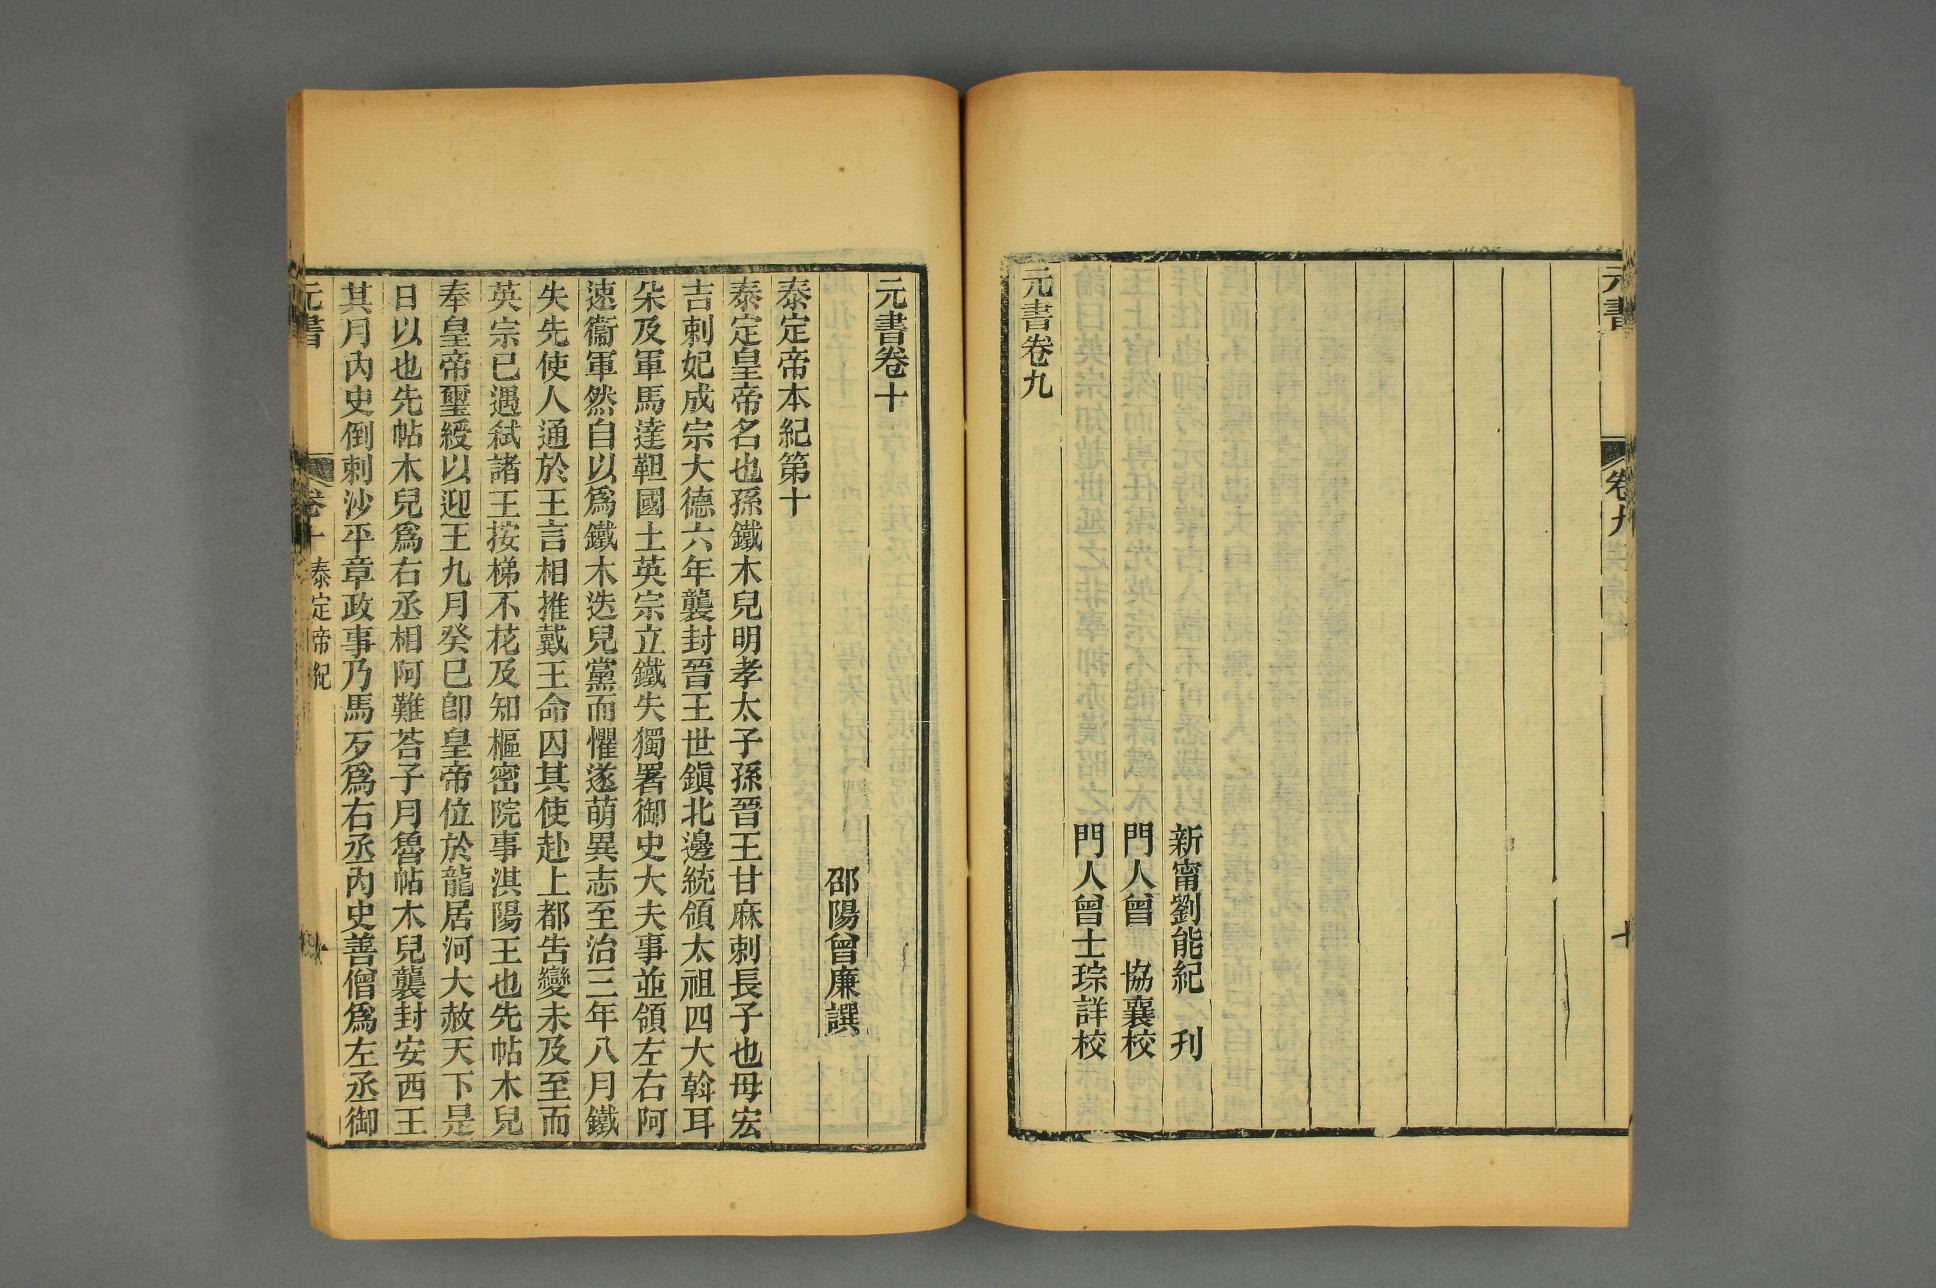 元書
卷九
十
新甯劉能紀　刊
門人曾　協襄校
門人曾士琮詳校
元書卷九
元書卷十
邵陽曾廉譔
泰定帝本紀第十
泰定皇帝名也孫鐵木兒明孝太子孫晉王甘麻剌長子也母宏
吉剌妃成宗大德六年襲封晉王世鎭北邊統領太祖四大斡耳
朵及軍馬達靼國土英宗立鐵失獨署御史大夫事並領左右阿
速衞軍然自以爲鐵木迭兒黨而懼遂萌異志至治三年八月鐵
失先使人通於王言相推戴王命囚其使赴上都告變未及至而
英宗已遇弒諸王按梯不花及知樞密院事淇陽王也先帖木兒
奉皇帝璽綬以迎王九月癸巳卽皇帝位於龍居河大赦天下是
日以也先帖木兒爲右丞相阿難荅子月魯帖木兒襲封安西王
其月內史倒剌沙平章政事乃馬歹爲右丞內史善僧爲左丞御
元書
卷十
泰定帝紀